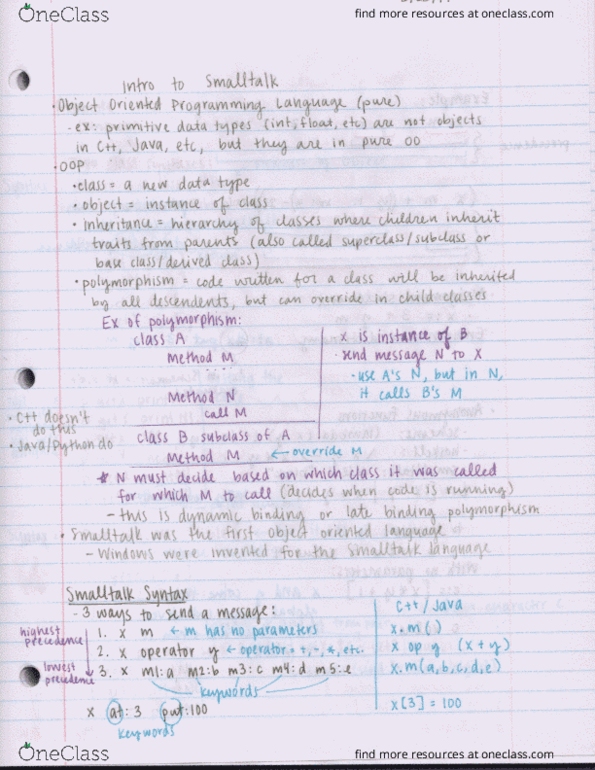 OneClass
find more resources at oneclass.com
Intro to Smalltalk
• Object Oriented Programming Language (pure)
- ex: primitive data types (int, float, etc) are not objects
in C++, Java, etc, but they are in pure OO
• OOP
• class = a new data type
• object = instance of class
• Inheritance = hierarchy of classes where children inherit
traits from parents (also called superclass/subclass or
base class/derived class)
• polymorphism = code written for a class will be inherited
by all descendents, but can override in child classes
Ex of polymorphism:
class A
Method M
Method N
call M
class B subclass of A
Method M ← override M
x is instance of B
• send message N to X
• use A's N, but in N,
it calls B's M
• C++ doesn't
do this
• Java/Python do
* N must decide based on which class it was called
for which M to call (decides when code is running)
- this is dynamic binding or late binding polymorphism
• Smalltalk was the first object oriented language
- Windows were invented for the Smalltalk language
Smalltalk Syntax
- 3 ways to send a message:
C++/Java
highest
precedence
1. x m ← m has no parameters
x.m()
2. x operator y ← operator = +, -, *, etc.
x op y (x+y)
lowest
precedence
3. x m1:a m2:b m3:c m4:d m5:e
x.m(a,b,c,d,e)
keywords
x at: 3 put:100
x[3] = 100
keywords
OneClass
find more resources at oneclass.com